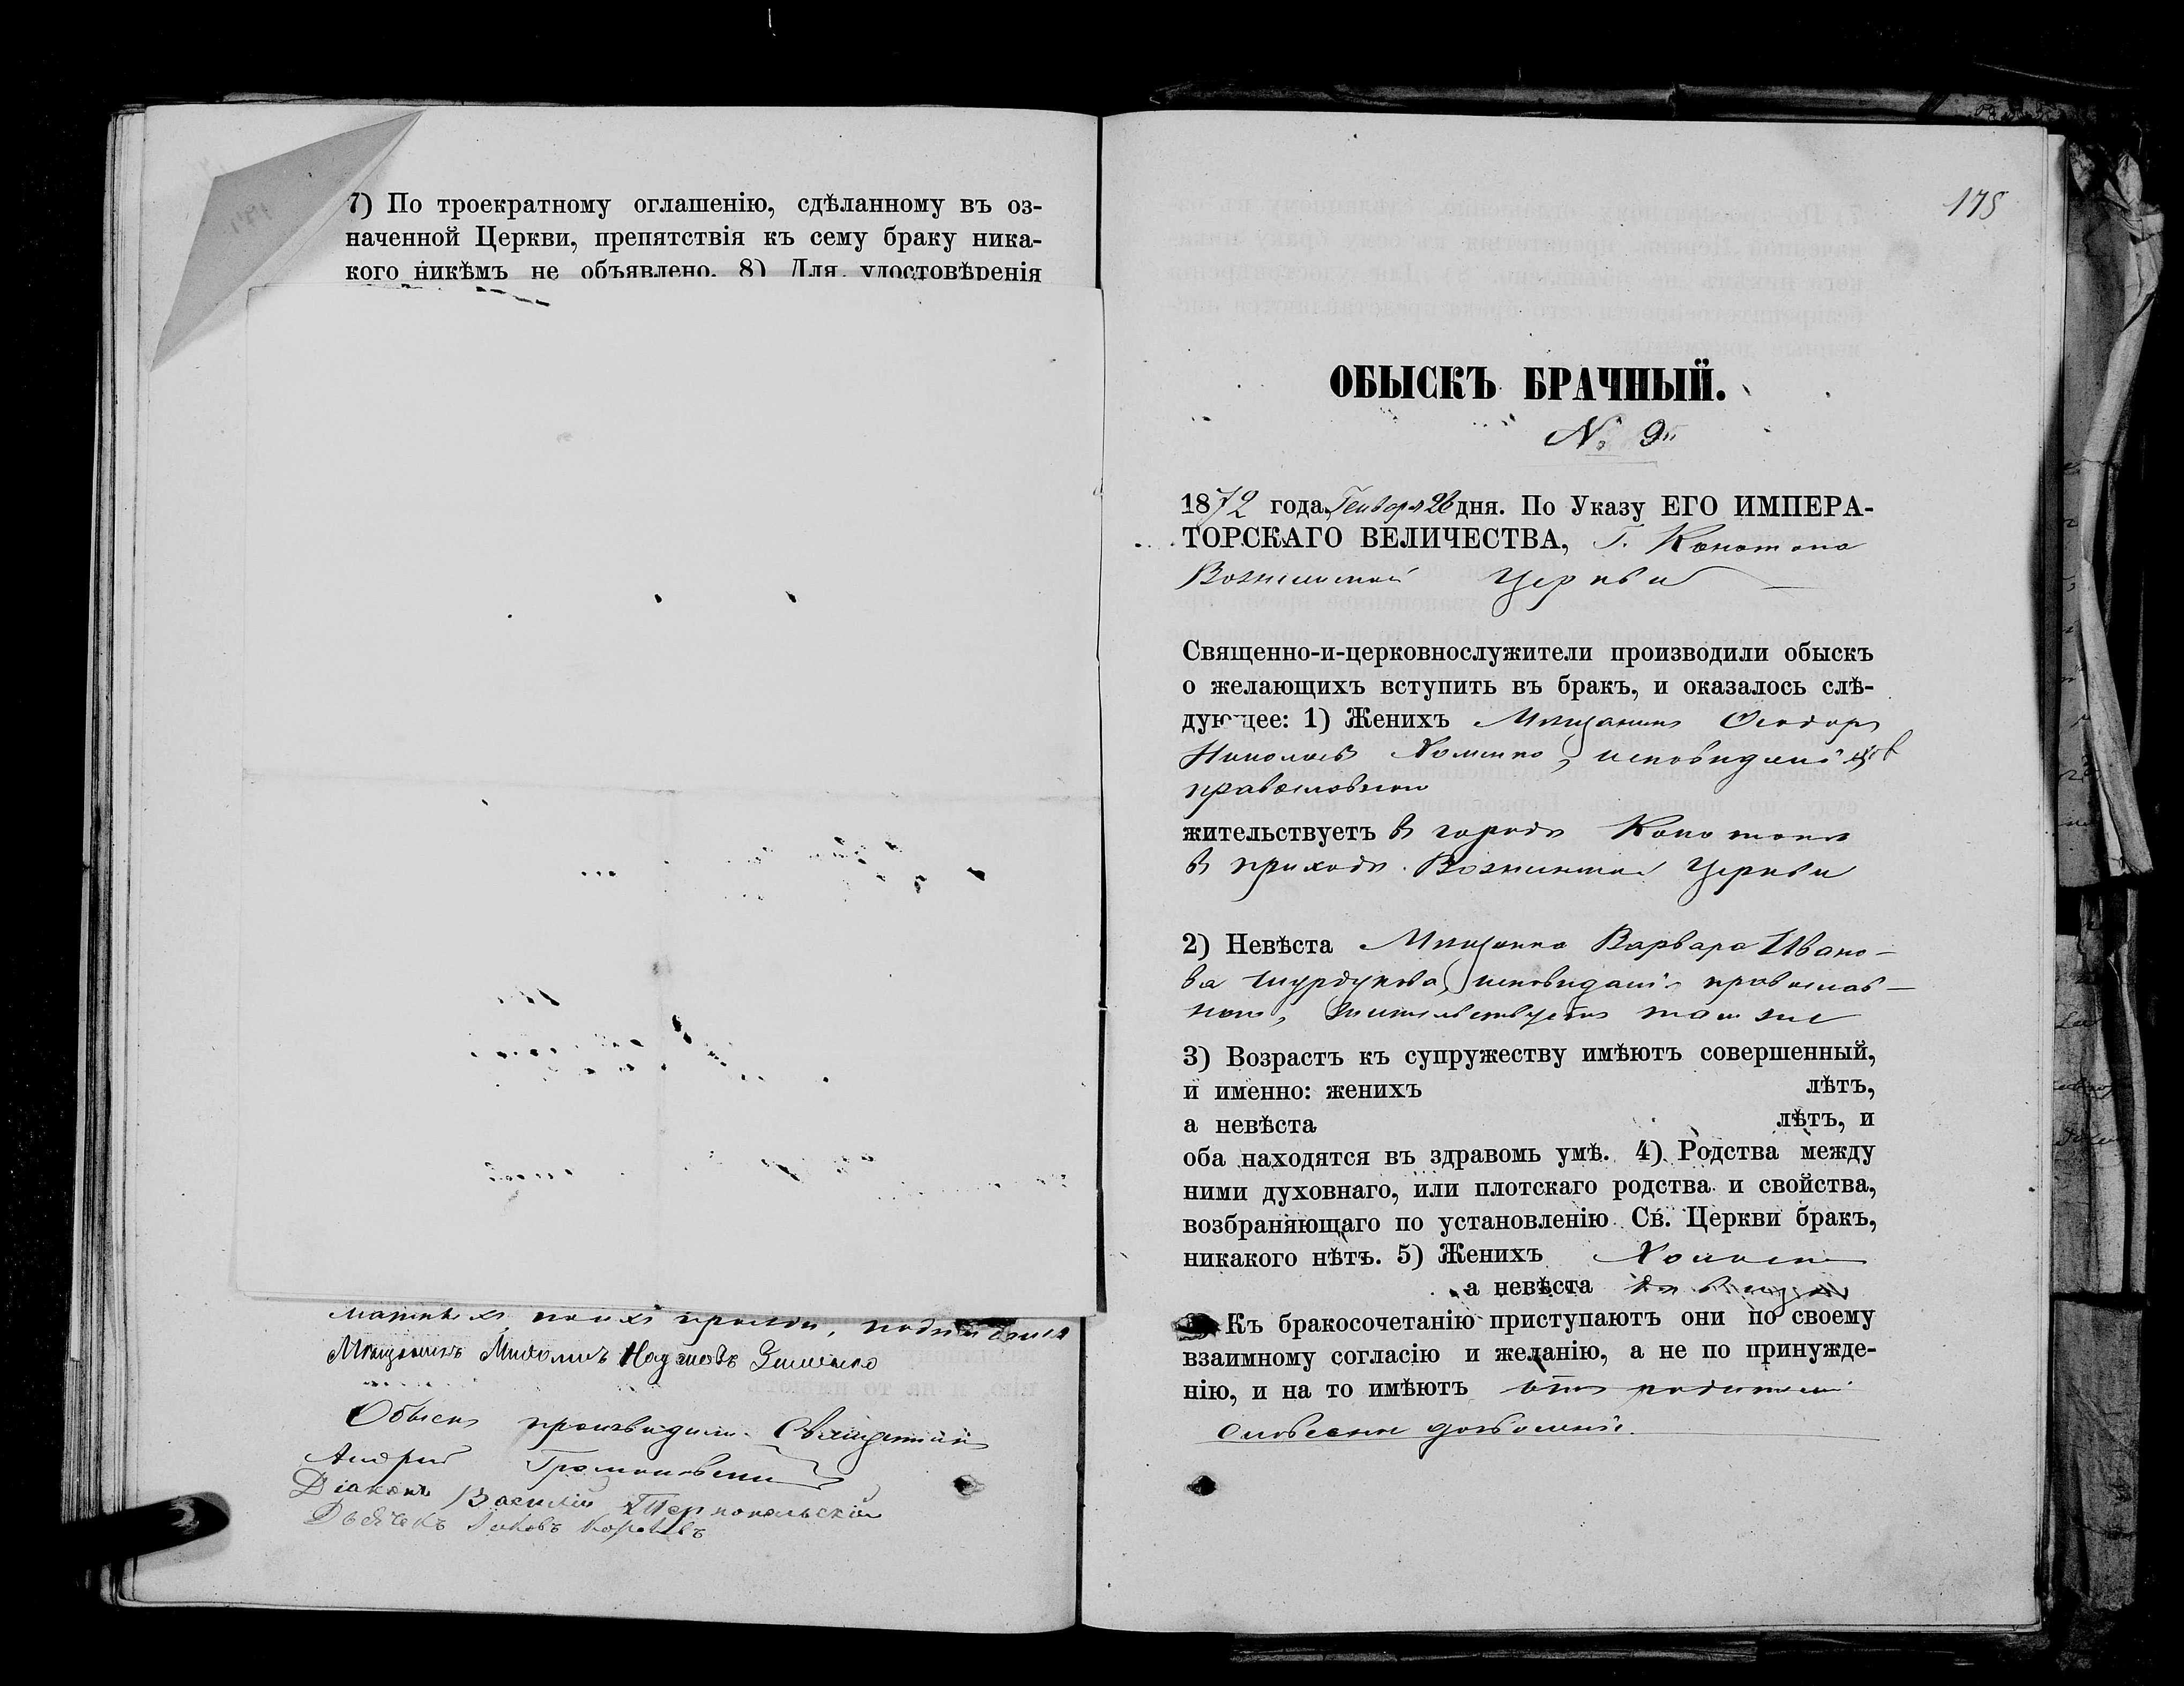 7) По троекратному оглашенію, сдѣланному въ оз-
наченной Церкви, препятствія къ сему браку ника-
кого никѣмъ не объявлено. 8) Для удостовѣренія
Обыскъ производили: Священникъ
Андрей
Діаконъ Василій Тернопольскій
Дьячекъ Яковъ
175
ОБЫСКЪ БРАЧНЫЙ.
№ 9й
1872 года Генваря 26 дня. По Указу ЕГО ИМПЕРА-
ТОРСКАГО ВЕЛИЧЕСТВА, Г. Конотопа
Вознесенской Церкви
Священно-и-церковнослужители производили обыскъ
о желающихъ вступить въ бракъ, и оказалось слѣ-
дующее: 1) Женихъ Мѣщанинъ Ѳеодоръ
Николаевъ Хоменко, исповѣданія
православнаго
жительствуетъ въ городѣ Конотопѣ
въ приходѣ Вознесенской Церкви
2) Невѣста Мѣщанка Варвара Ивано-
ва Шурдукова, исповѣданія православ-
наго, жительствуетъ тамъ же
3) Возрастъ къ супружеству имѣютъ совершенный,
и именно: женихъ лѣтъ,
а невѣста лѣтъ, и
оба находятся въ здравомъ умѣ. 4) Родства между
ними духовнаго, или плотскаго родства и свойства,
возбраняющаго по установленію Св. Церкви бракъ,
никакого нѣтъ. 5) Женихъ Холостъ
а невѣста дѣвица
Къ бракосочетанію приступаютъ они по своему
взаимному согласію и желанію, а не по принужде-
нію, и на то имѣютъ отъ родителей
словесное дозволеніе.